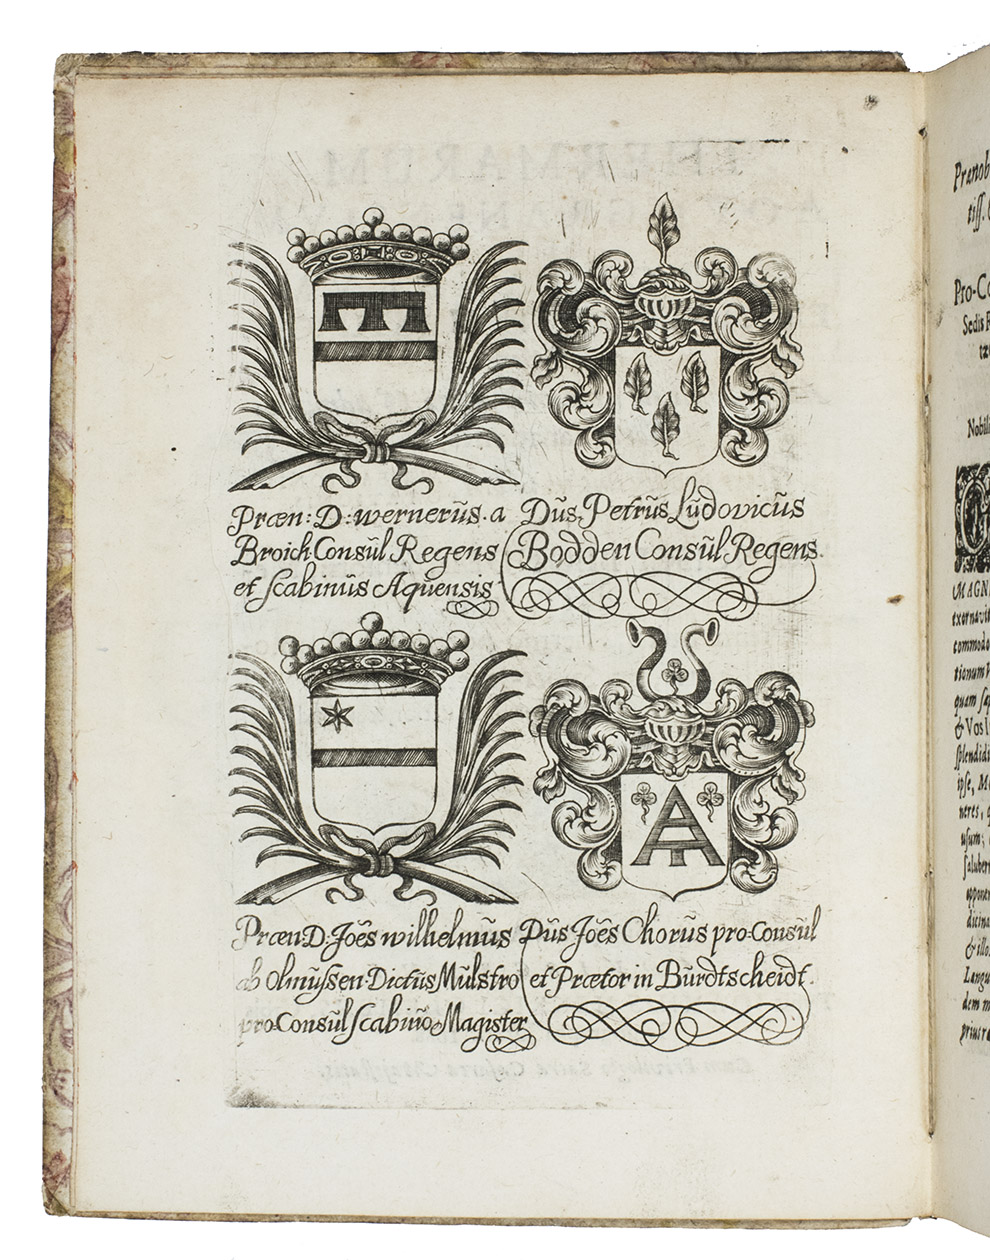 Præn: D: wernerūs. a
Broich Consūl Regens
et scabinūs Aquensis
Dūs Petrūs Lūdovicūs
Bodden Consūl Regens.
Præn D: Joēs wilhelmūs
ab Olmÿssen Dictūs Mūlstro
pro-Consūl scabinō Magister
Dūs Joēs Chorūs pro-Consūl
et Prætor in Būrdtscheidt.
Prænob
tiss.
Pro-Co
Sedis R
Nobili
MAGN
exornavit
commodo
tionum
quam sap
& Vos
splendidi
ipse, M
neres,
usum;
saluberr
opponer
dicina
& illo
Langu
dem m
prius ra